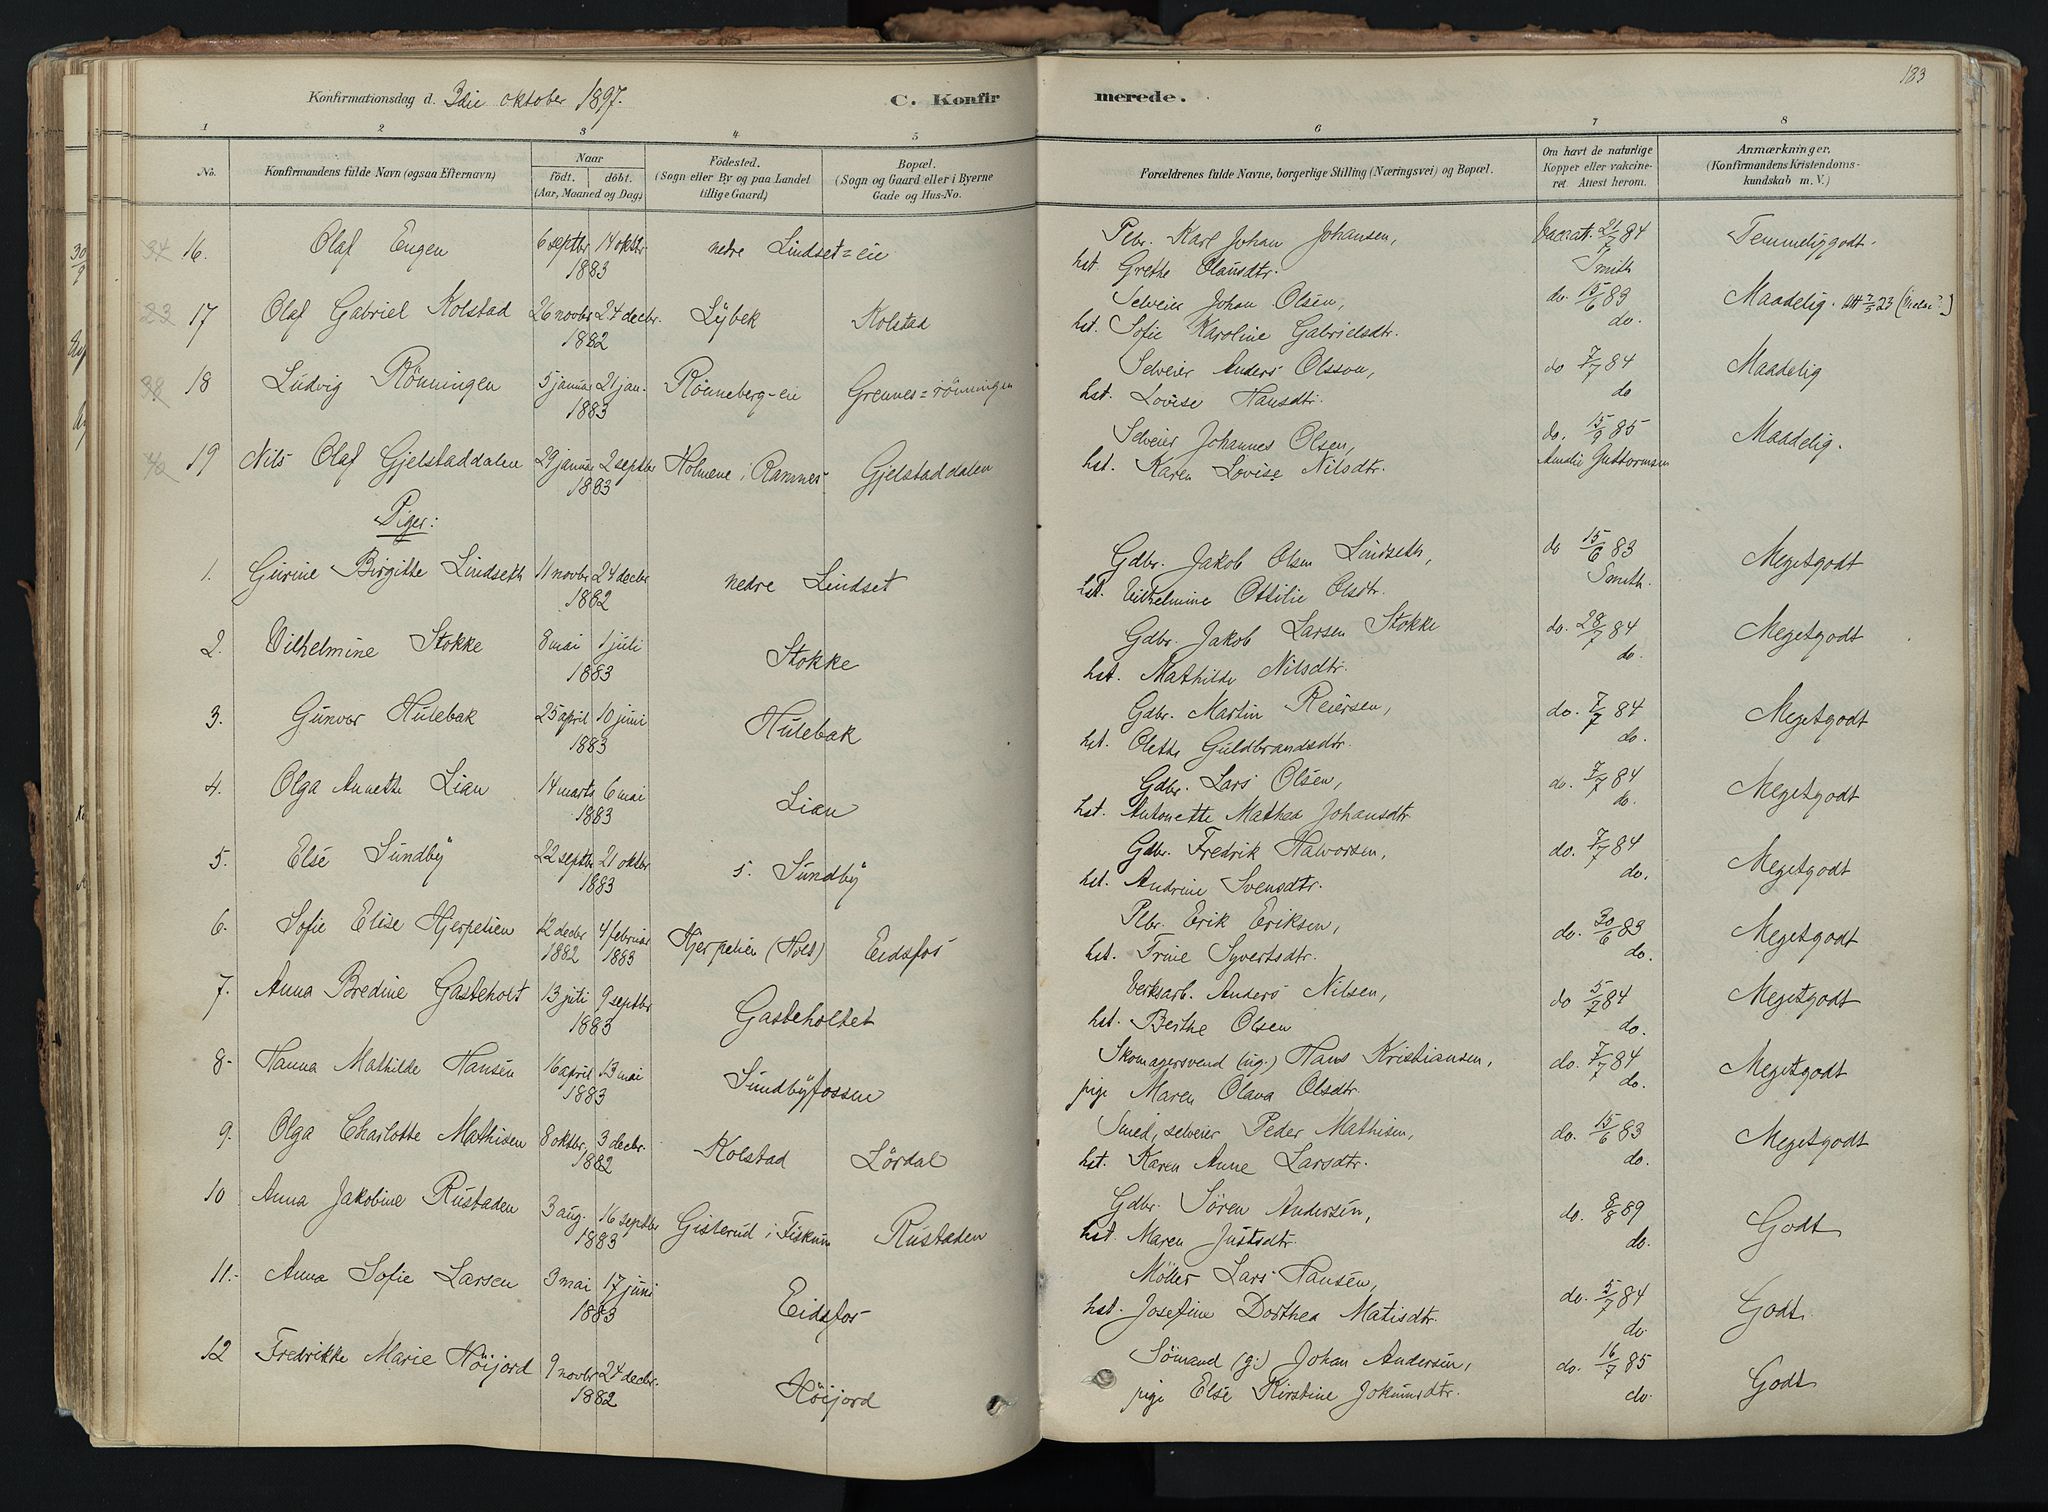 183
Konfirmationsdag d. 3die oktober 1897.
C. Konfir merede.
1 2 3 4 5 6 7 8
No.
Konfirmandens fulde Navn (ogsaa Efternavn)
Naar
födt. döbt.
(Aar, Maaned og Dag)
Födested.
(Sogn eller By og paa Landet
tillige Gaard)
Bopæl.
(Sogn og Gaard eller i Byerne
Gade og Hus-No.
Forældrenes fulde Navne, borgerlige Stilling (Næringsvei) og Bopæl.
Om havt de naturlige
Kopper eller vakcine-
ret. Attest herom.
Anmærkninger.
(Konfirmandens Kristendoms-
kundskab m. V.)
34 16. Olaf Engen 6 septbr 14 oktbr 1883 nedre Lindset=eie Plbr. Karl Johan Johansen, vaccat. 21/7 84 Temmeliggodt.
hst. Grethe Olausdtr. Smith
23 17 Olaf Gabriel Kolstad 26 novbr 24 decbr. 1882 Lybek Kolstad Selveier Johan Olsen, do. 15/6 83 Maadelig.
hst. Sofie Karoline Gabrielsdtr. do.
38 18 Ludvig Rönningen 5 januar 21 jan. 1883 Rönneberg-eie Grennes=rönningen Selveier Anders Olsson, do 7/7 84 Maadelig
hst. Lovise Hansdtr. do
40 19 Nils Olaf Gjelstaddalen 29 januar 2 septbr 1883 Holmene i Ramnes Gjelstaddalen Selveier Johannes Olsen, do. 15/9 85 Maadelig.
hst. Karen Lovise Nilsdtr. Amalie Guttormsen
Piger:
1. Gurine Birgitte Lindseth 11 novbr 24 decbr 1882 nedre Lindset Gdbr. Jakob Olsen Lindseth, do 15/6 83 Megetgodt
hst. Vilhelmine Ottilie Olsdtr. Smith.
2. Vilhelmine Stokke 8 mai 1 juli 1883 Stokke Gdbr. Jakob Larsen Stokke do. 28/7 84 Megetgodt
hst. Mathilde Nilsdtr. do.
3. Gunvor Hulebak 25 april 10 juni 1883 Hulebak Gdbr. Martin Reiersen, do. 7/7 84 Megetgodt
hst. Olette Guldbrandsdtr. do.
4. Olga Annette Lian 14 marts 6 mai 1883 Lian Gdbr. Lars Olsen, do. 7/7 84 Megetgodt
hst. Antonette Mathea Johansdtr do.
5. Else Sundby 22 septbr 21 oktbr 1883 s. Sundby Gdbr. Fredrik Halvorsen, do. 7/7 84 Megetgodt
hst. Andrine Svensdtr. do.
6. Sofie Elise Hjerpetien 12 decbr 1882 4 februar 1883 Hjerpetien (Holt) Eidsfos Plbr. Erik Eriksen, do. 30/6 83 Megetgodt
hst. Trine Syvertsdtr. do.
7. Anna Bredine Gasteholt 13 juli 9 septbr 1883 Gasteholtet Verksarb. Anders Nilsen, do 5/7 84 Megetgodt
hst. Berthe Olsen do.
8- Hanna Mathilde Hansen 16 april 13 mai 1883 Sundbyfossen Skomagersvend (ug.) Hans Kristiansen, do. 7/7 84 Megetgodt
pige Maren Olava Olsdtr. do.
9. Olga Charlotte Mathisen 8 oktbr, 3 decbr. 1882 Kolstad Lördal Smed, selveier Peder Mathisen, do. 15/6 83 Megetgodt
hst. Karen Anne Larsdtr. do.
10 Anna Jakobine Rustaden 3 aug. 16 septbr 1883 Gisterud i Fiskum Rustaden Gdbr. Sören Andersen, do. 8/8 89 Godt
hst. Maren Justsdtr. do.
11.- Anna Sofie Larsen 3 mai 17 juni 1883 Eidsfos Möller Lars Hansen, do. 5/7 84 Godt
hst. Josefine Dorthea Matisdtr. do
12 Fredrikke Marie Höijord 9 novbr 24 decbr. 1882 Höijord Sömand (g.) Johan Andersen, do. 16/7 85 Godt
pige Else Kirstine Jokumsdtr. do.